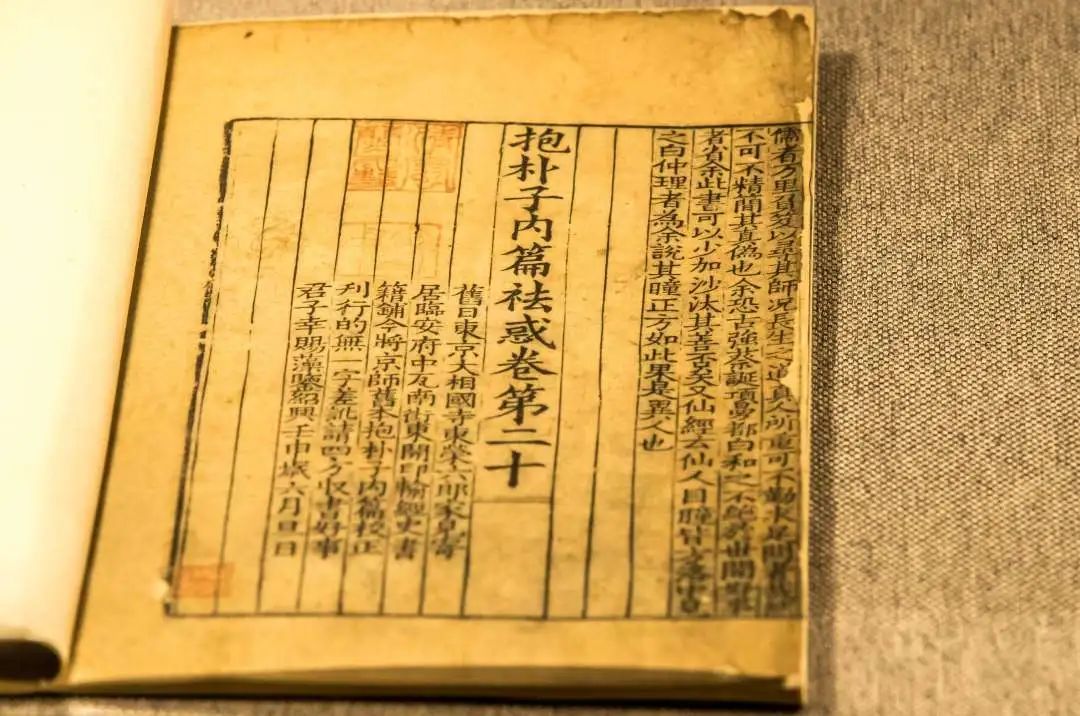 儒者万里負笈以尋其師況長生之道真人所重可不勤求足問者哉然
不可不精簡其真偽也余恐古強蔡誕項曼都白和之不絕於世間好事
者省余此書可以少加沙汰其善否矣又仙經云仙人目瞳皆方洛中見
之白仲理者為余說其瞳正方如此果是異人也
抱朴子内篇祛惑卷第二十
舊日東京大相國寺東榮六郎家見寄
居臨安府中瓦南街東開印輸經史書
籍鋪今將京師舊本抱朴子内篇校正
刊行的無一字差訛請四方収書好事
君子幸賜藻鑒紹興壬申歲六月旦日